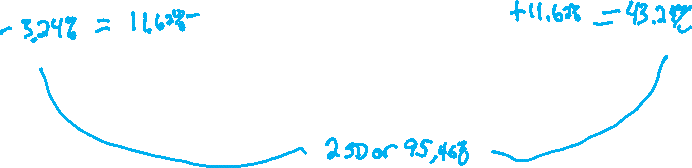 - 3,24% = 11,62%
+11.62% = 43.24%
2SD or 95,46%